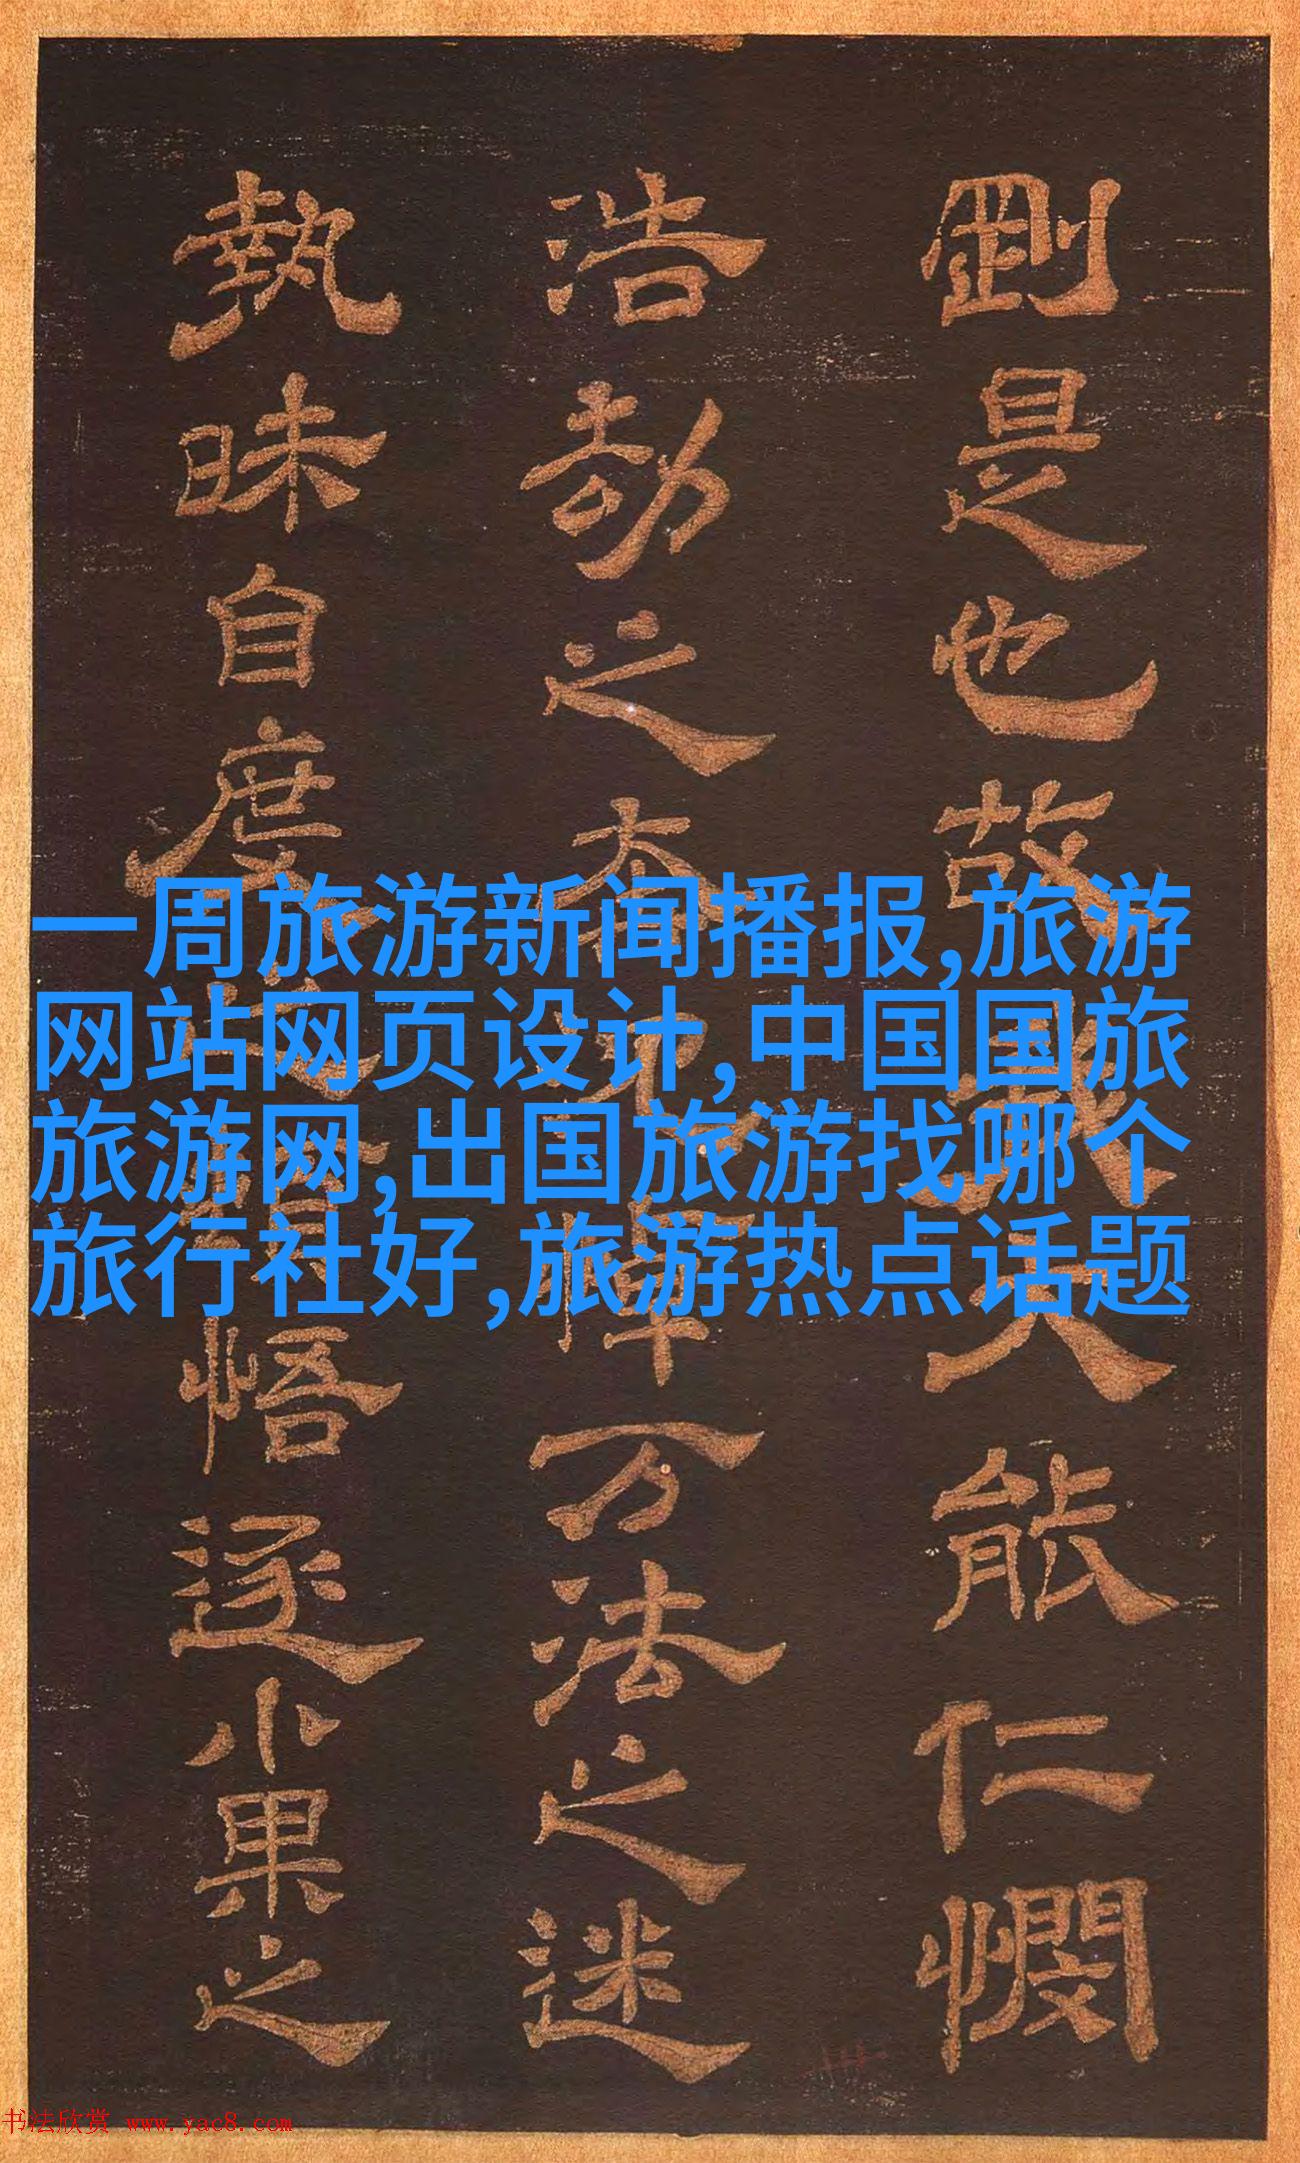 剛是也故大能仁憫
浩劫之万法之迷
執昧自度悟逐小果之
一周旅游新闻播报,旅游
网站网页设计,中国国旅
旅游网,出国旅游找哪个
旅行社好,旅游热点话题
书法欣赏 www.yac8.com